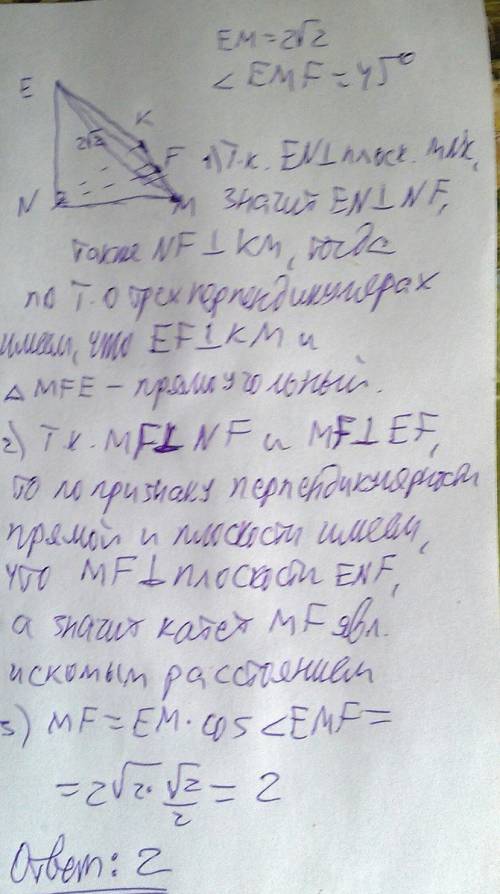 EM = 2√2
∠EMF = 45°
E
K
2√2
F
N
M
1) Т.к. EN⊥плоск. MNK,
значит EN⊥NF,
также NF⊥KM, тогда
по Т. о трех перпендикулярах
имеем, что EF⊥KM и
△MFE – прямоугольный.
2) Т.к. MF⊥NF и MF⊥EF,
то по признаку перпендикулярности
прямой и плоскости имеем,
что MF⊥плоскости ENF,
а значит катет MF явл.
искомым расстоянием
3) MF = EM · cos∠EMF =
= 2√2 · √2/2 = 2
Ответ: 2